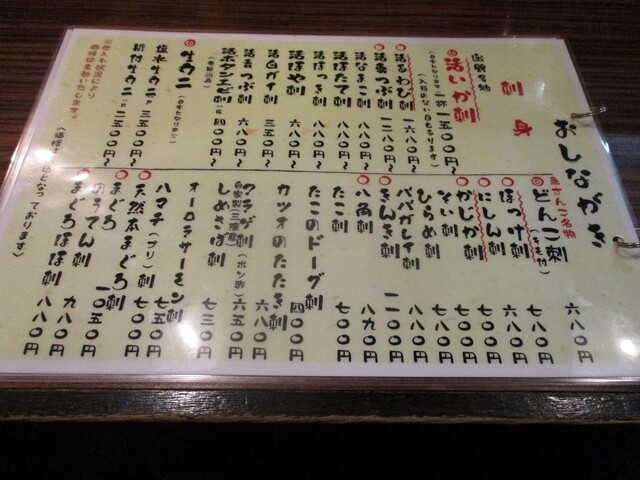 おしながき
刺身
函館名物
活いか刺 一杯 一五〇〇円〜
(入荷のない日もあります)
活あわび刺 一六八〇円〜
活あつぶ刺 一二八〇円〜
活なまこ刺 八八〇円
活ほたて刺 八八〇円
活ほっき刺 八八〇円
活ほや刺 六八〇円
活白ガイ刺 三五〇円
活まつぶ刺 六八〇円
活ボタンエビ刺 五〇〇円〜
生ウニ (時価となります)
塩水生ウニP 三五〇〇円〜
折付生ウニP 二五〇〇円〜
※仕入れ状況により
価格は変動いたします。
どんこ刺(きも付) 六八〇円
ほっけ刺 七八〇円
にしん刺 六八〇円
かじか刺 七〇〇円
そい刺 七〇〇円
ひらめ刺 七八〇円
ババガレイ刺 八八〇円
きんき刺 一一〇〇円
八角刺 八九〇円
たこ刺 七〇〇円
たこのドーグ刺 四〇〇円
カツオのたたき刺 六八〇円
クラゲ刺(ポン酢) 六五〇円
しめさば刺 七三〇円
オーロラサーモン刺 七五〇円
ハマチ(ブリ)刺 七〇〇円
天然本まぐろ刺 一〇五〇円
まぐろのうてん刺 九八〇円
まぐろほほ刺 八八〇円
となっております